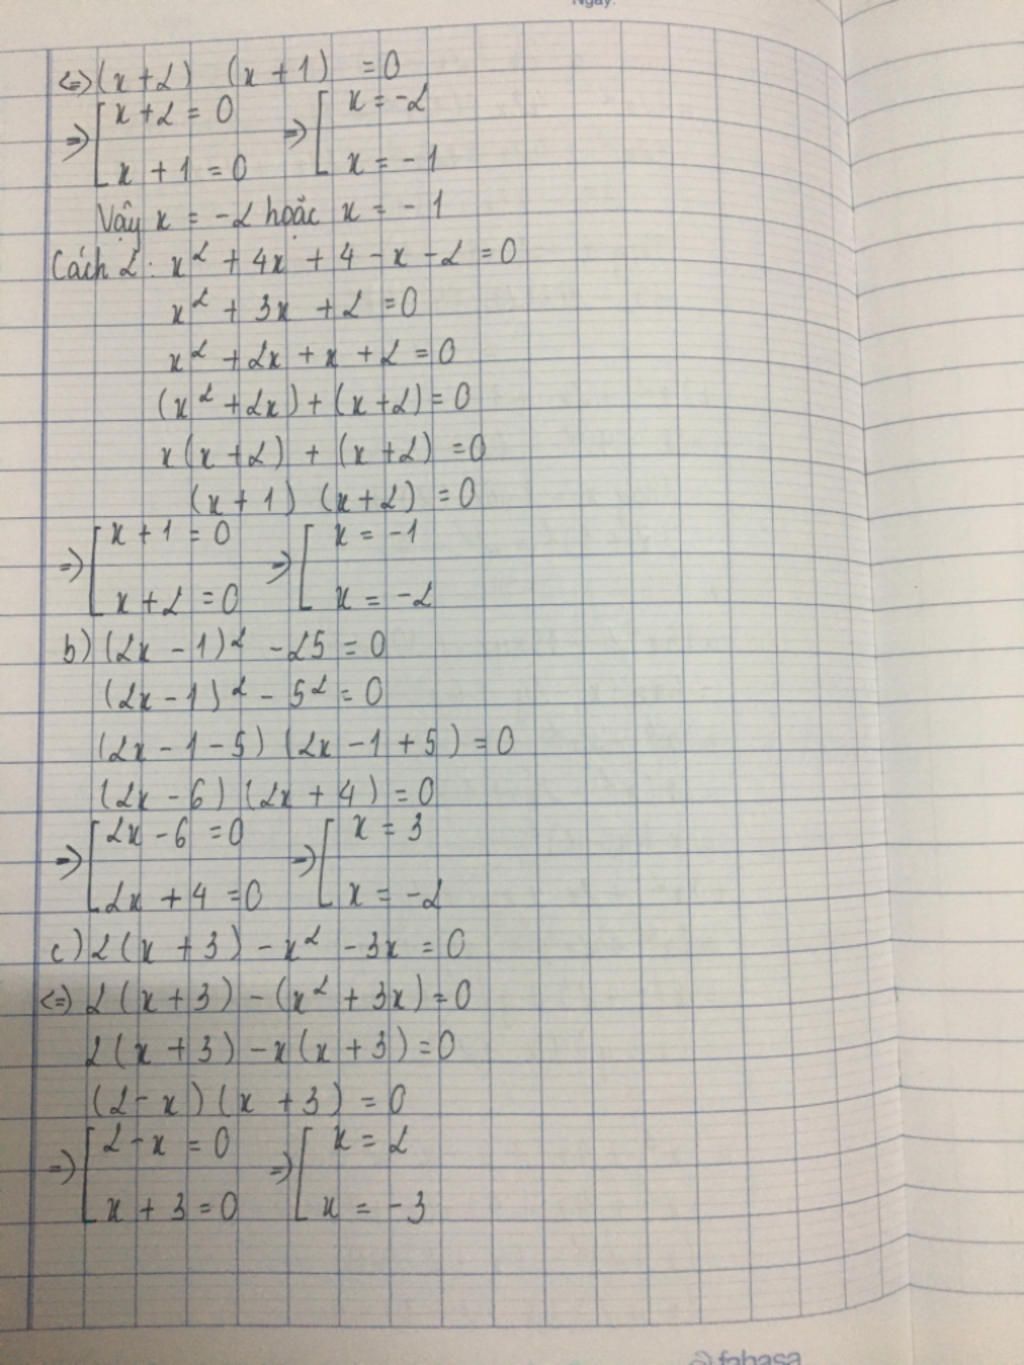 Ngày:
<=> (x + 2) (x + 1) = 0
=> [ x + 2 = 0 => [ x = -2
x + 1 = 0 x = -1
Vậy x = -2 hoặc x = -1
Cách 2: x² + 4x + 4 - x - 2 = 0
x² + 3x + 2 = 0
x² + 2x + x + 2 = 0
(x² + 2x) + (x + 2) = 0
x(x + 2) + (x + 2) = 0
(x + 1) (x + 2) = 0
=> [ x + 1 = 0 => [ x = -1
x + 2 = 0 x = -2
b) (2x - 1)² - 25 = 0
(2x - 1)² - 5² = 0
(2x - 1 - 5) (2x - 1 + 5) = 0
(2x - 6) (2x + 4) = 0
=> [ 2x - 6 = 0 => [ x = 3
2x + 4 = 0 x = -2
c) 2(x + 3) - x² - 3x = 0
<=> 2(x + 3) - (x² + 3x) = 0
2(x + 3) - x(x + 3) = 0
(2 - x) (x + 3) = 0
=> [ 2 - x = 0 => [ x = 2
x + 3 = 0 x = -3
fahasa